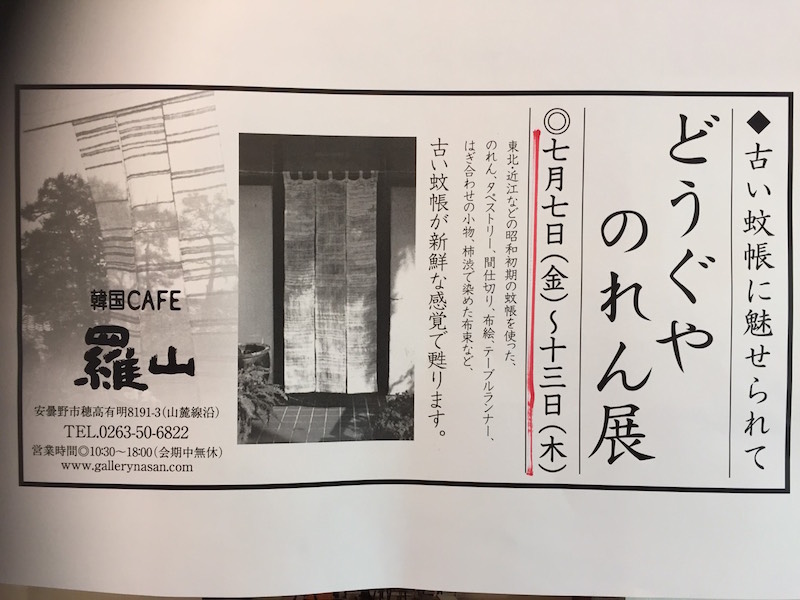 ◆古い蚊帳に魅せられて
どうぐや
のれん展
◎七月七日(金)〜十三日(木)
東北・近江などの昭和初期の蚊帳を使った、
のれん、タペストリー、間仕切り、布絵、テーブルランナー、
はぎ合わせの小物、柿渋で染めた布束など、
古い蚊帳が新鮮な感覚で甦ります。
韓国CAFE
羅山
安曇野市穂高有明8191-3(山麓線沿)
TEL.0263-50-6822
営業時間◎10:30〜18:00(会期中無休)
www.gallerynasan.com